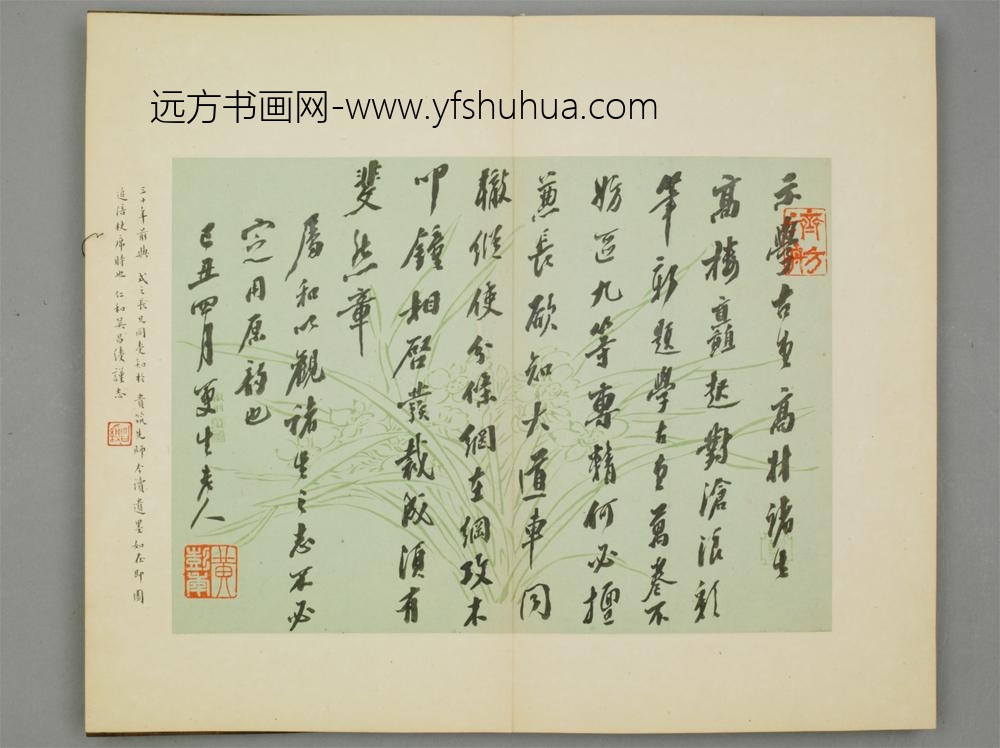 远方书画网-www.yfshuhua.com
示學古堂高材諸生
高樓直躡起對滄浪彩
筆新題學古堂萬卷不
妨區九等專精何必擅
兼長欲知大道車同
轍從使分條網在綱攻木
叩鐘相啓發裁成須有
斐然章
屬和以觀諸生之志不必
定用原韵也
己丑四月更生老人
黃彭年
三十年前與 成之長兄同受知於 貴筑先師今瀆遺墨如在即圓
追陪秋席時也 仁和吳昌綬謹志